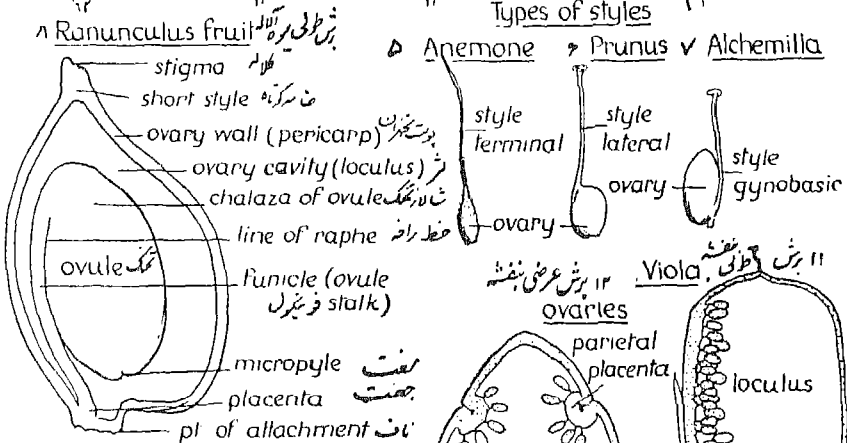 Types of styles
۸ Ranunculus fruit برش طولی میوه آلاله
stigma کلاله
short style خامه کوتاه
ovary wall (pericarp)
ovary cavity (loculus)
chalaza of ovule
line of raphe خط رافه
ovule تخمک
funicle (ovule
stalk) فونیکول
micropyle سفت
placenta جفت
pt of attachment ناف
۵ Anemone
۶ Prunus
۷ Alchemilla
style
terminal
style
lateral
style
gynobasic
ovary
ovary
۱۲ برش عرضی بنفشه
Viola
۱۱ برش طولی بنفشه
ovaries
parietal
placenta
loculus